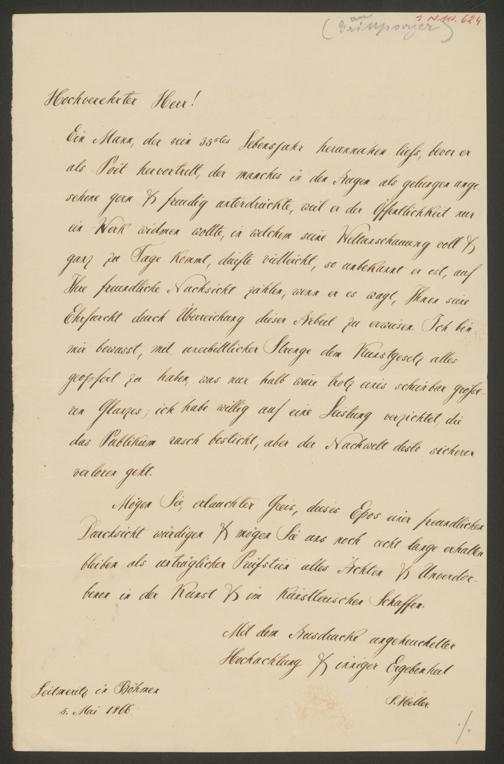 (an Grillparzer)
I.N. 10. 624
Hochverehrter Herr!
Ein Mann, der sein 35stes Lebensjahr herannahen ließ, bevor er
als Poët hervortrat, der manches in den Augen als gelungen ange
sehene gern & freudig unterdrückte, weil er der Öffentlichkeit nur
ein Werk widmen wollte, in welchem seine Weltanschauung voll &
ganz zu Tage kommt, dürfte vielleicht, so unbekannt er ist, auf
Ihre freundliche Nachsicht zählen, wenn er es wagt, Ihnen seine
Ehrfurcht durch Überreichung dieser Arbeit zu erweisen. Ich bin
mir bewusst, mit unerbittlicher Strenge dem Kunstgesetz alles
geopfert zu haben, was nur halb wäre trotz eines scheinbar größe-
ren Glanzes; ich habe willig auf eine Leistung verzichtet, die
das Publikum rasch besticht, aber der Nachwelt desto sicherer
verloren geht.
Mögen Sie, erlauchter Greis, dieses Epos einer freundlichen
Durchsicht würdigen & mögen Sie uns noch recht lange erhalten
bleiben als untrüglicher Prüfstein alles Ächten & Unverdor-
benen in der Kunst & im künstlerischen Schaffen.
Mit dem Ausdrucke ungeheuchelter
Hochachtung & inniger Ergebenheit
S. Heller.
Leitmeritz in Böhmen
5. Mai 1866.